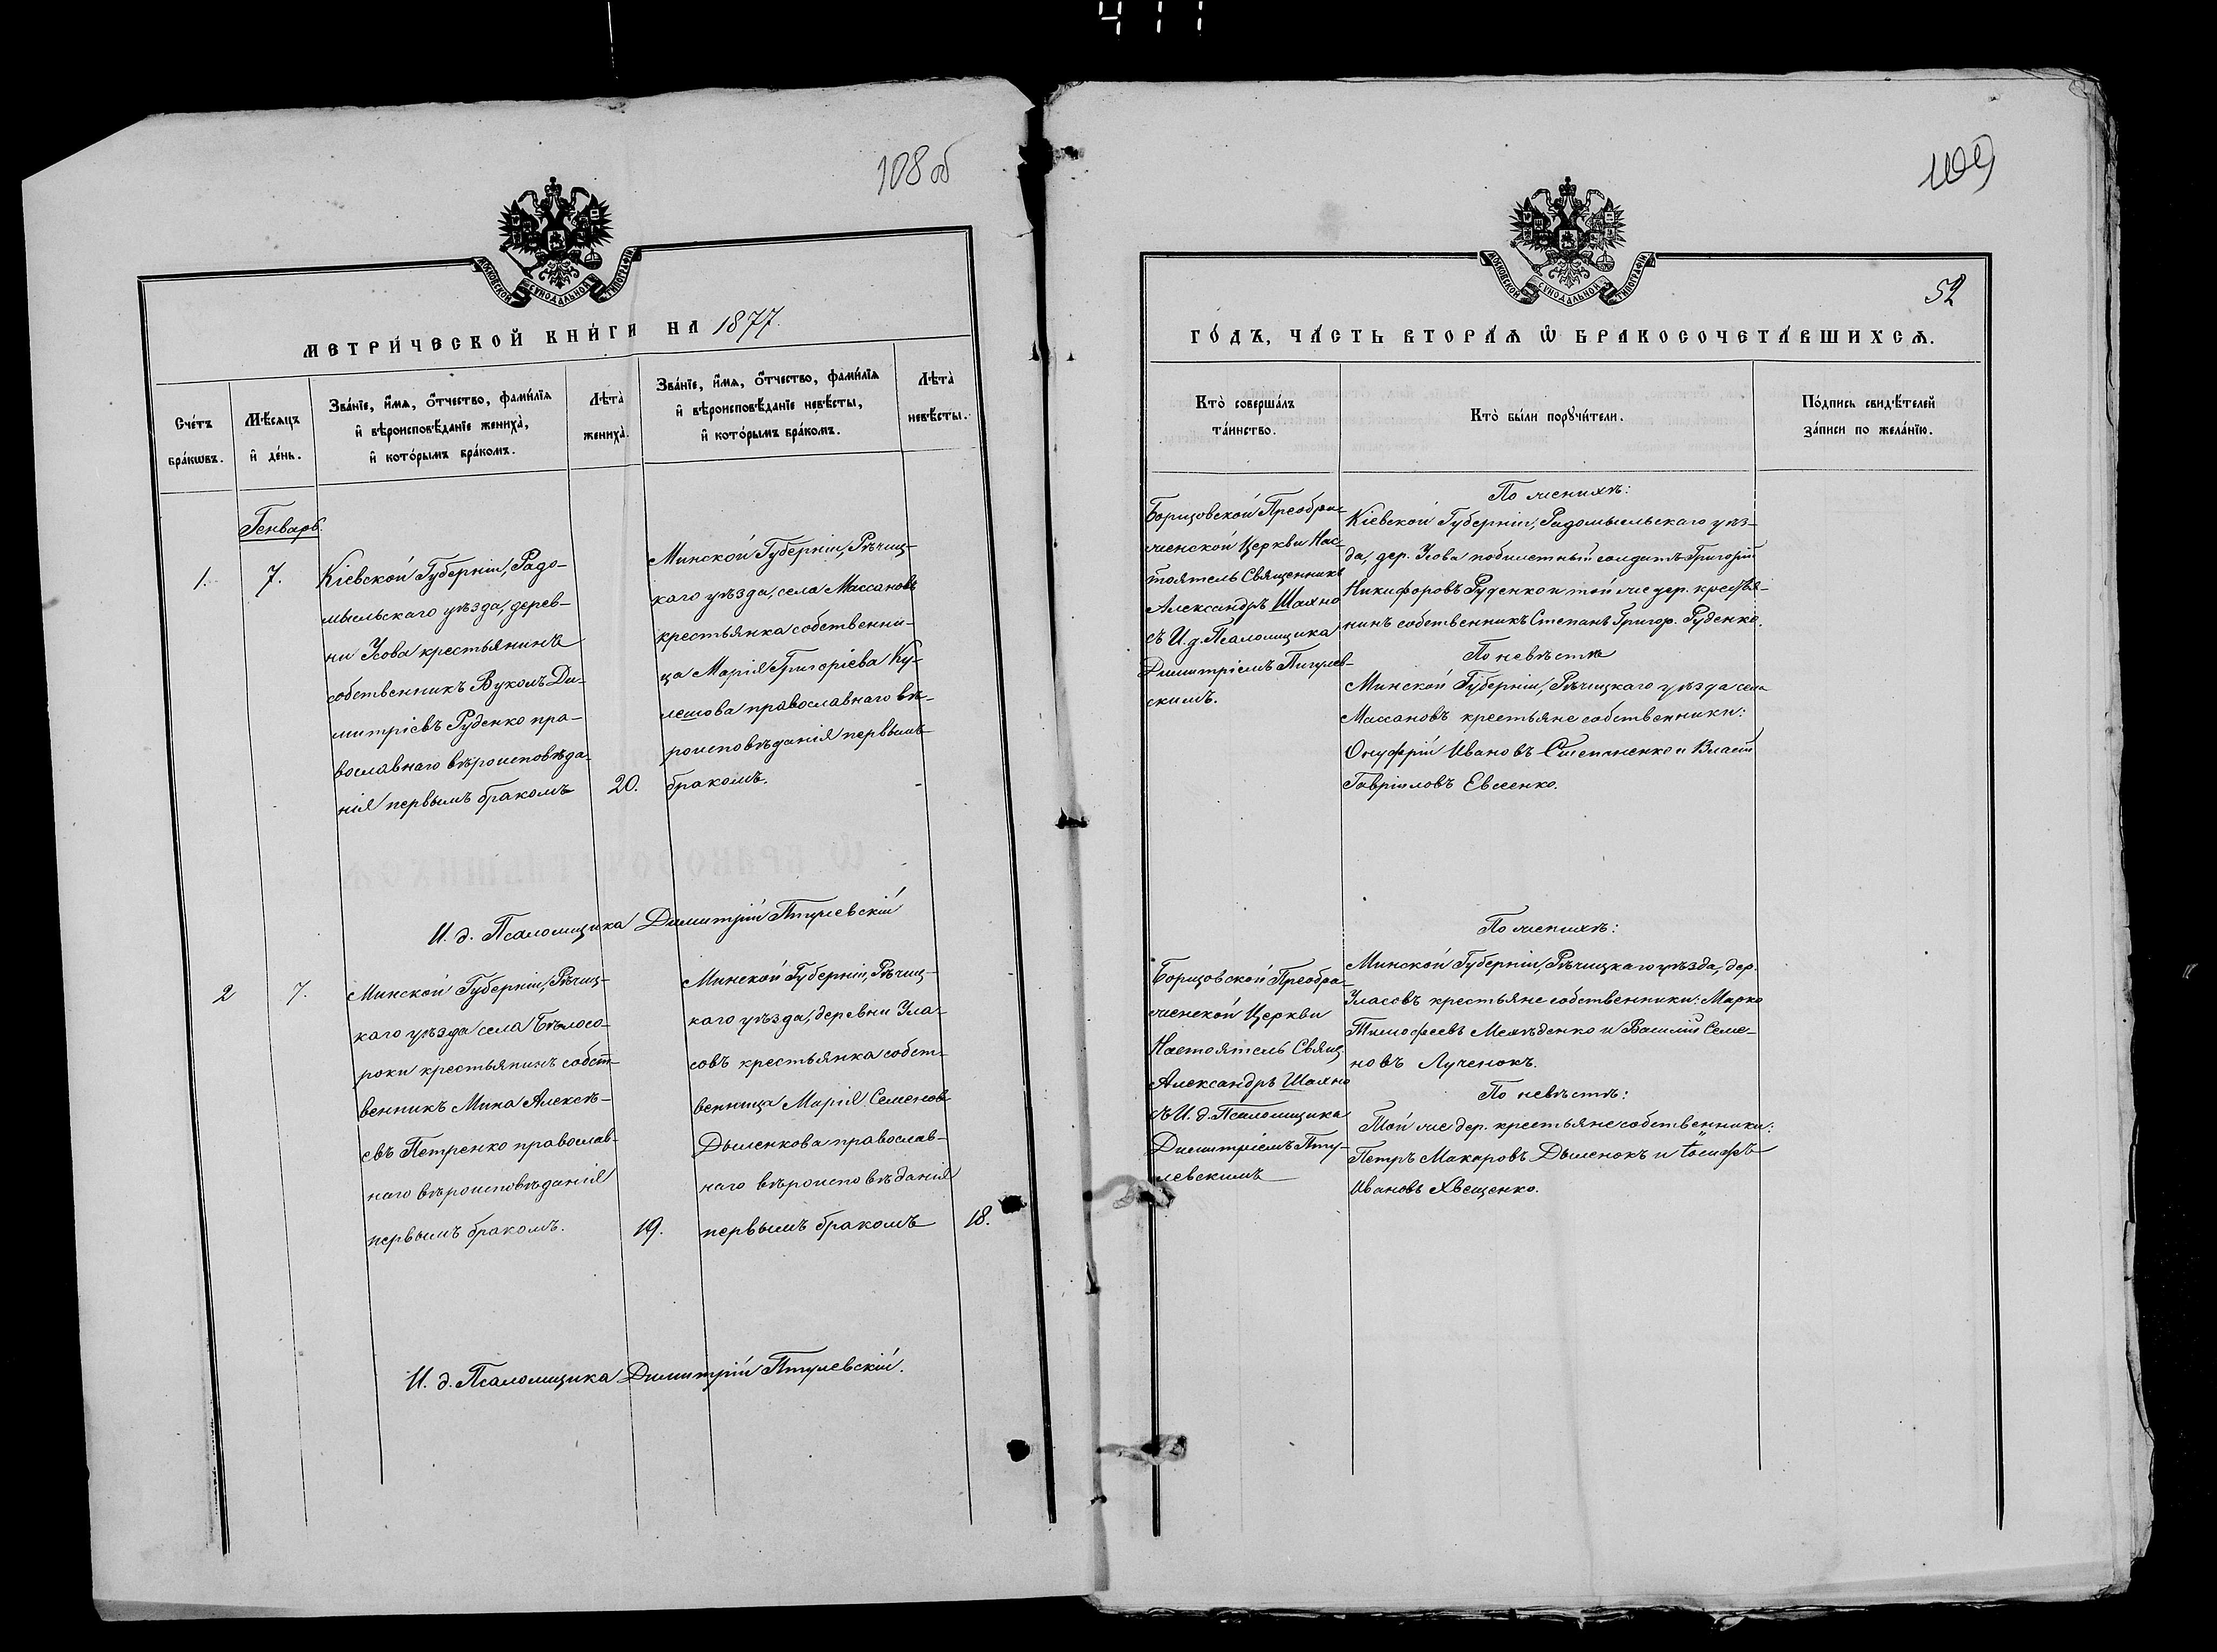 411
108 об
МОСКОВСКОЙ СѴНОДАЛЬНОЙ ТИПОГРАФІИ
МЕТРИ́ЧЕСКОЙ КНИ́ГИ НА 1877.
Сче́тъ бра́кѡвъ.
Мѣ́сѧцъ и҆ де́нь.
Зва́нїе, и҆́мѧ, ѻ҆́тчество, фами́лїа и҆ вѣроисповѣ́данїе жениха̀, и҆ кото́рымъ бра́комъ.
Лѣта̀ жениха̀.
Зва́нїе, и҆́мѧ, ѻ҆́тчество, фами́лїа и҆ вѣроисповѣ́данїе невѣ́сты, и҆ кото́рымъ бра́комъ.
Лѣта̀ невѣ́сты.
Генварь.
1.
7.
Кіевской Губерніи, Радо-
мысльскаго уѣзда, дерев-
ни Усова крестьянинъ
собственникъ Вуколъ Ди-
митріевъ Руденко пра-
вославнаго вѣроисповѣда-
нія первымъ бракомъ
20.
Минской Губерніи, Рѣчиц-
каго уѣзда, села Массановъ
крестьянка собственни-
ца Марія Григоріева Ку-
лешова православнаго вѣ-
роисповѣданія первымъ
бракомъ.
-
И. д. Псаломщика Димитрій Пигулевскій
2
7.
Минской Губерніи, Рѣчиц-
каго уѣзда села Бѣлосо-
роки крестьянинъ собст-
венникъ Мина Алексѣ-
евъ Петренко православ-
наго вѣроисповѣданія
первымъ бракомъ.
19.
Минской Губерніи, Рѣчиц-
каго уѣзда, деревни Ула-
совъ крестьянка собст-
венница Марія Семенов
Дыленкова православ-
наго вѣроисповѣданія
первымъ бракомъ
18.
И. д. Псаломщика Димитрій Пигулевскій.
109
52
МОСКОВСКОЙ СѴНОДАЛЬНОЙ ТИПОГРАФІИ
ГО́ДЪ, ЧА́СТЬ ВТОРА́Ѧ Ѡ҆ БРАКОСОЧЕТА́ВШИХСѦ.
Кто̀ соверша́лъ та́инство.
Кто̀ бы́ли порꙋчи́тели.
По́дпись свидѣ́телей за́писи по жела́нїю.
Борщовской Преображ-
женской Церкви Нас-
тоятель Священникъ
Александръ Шахно
съ И. д. Псаломщика
Димитріемъ Пигулев-
скимъ.
По женихѣ:
Кіевской Губерніи, Радомысльскаго уѣз-
да, дер. Усова побилетный солдатъ Григорій
Никифоровъ Руденко и той же дер. крестья-
нинъ собственникъ Степанъ Григор. Руденко.
По невѣстѣ
Минской Губерніи, Рѣчицкаго уѣзда села
Массановъ крестьяне собственники:
Онуфрій Ивановъ Степаненко и Власій
Гавріиловъ Евсеенко.
Борщовской Преобра-
женской Церкви
Настоятель Свящ.
Александръ Шахно
съ И. д. Псаломщика
Димитріемъ Пигу-
левскимъ
По женихѣ:
Минской Губерніи, Рѣчицкаго уѣзда, дер.
Уласовъ крестьяне собственники: Марко
Тимофеевъ и Василій Семе-
новъ Лученокъ.
По невѣстѣ:
Той же дер. крестьяне собственники:
Петръ Макаровъ Дыленокъ и Іосифъ
Ивановъ Хвещенко.